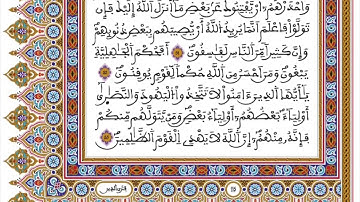 وَاحْذَرْهُمْ أَنْ يَفْتِنُوكَ عَنْ بَعْضِ مَا أَنْزَلَ اللَّهُ إِلَيْكَ فَإِنْ
تَوَلَّوْا فَاعْلَمْ أَنَّمَا يُرِيدُ اللَّهُ أَنْ يُصِيبَهُمْ بِبَعْضِ ذُنُوبِهِمْ
وَإِنَّ كَثِيرًا مِنَ النَّاسِ لَفَاسِقُونَ أَفَحُكْمَ الْجَاهِلِيَّةِ
يَبْغُونَ وَمَنْ أَحْسَنُ مِنَ اللَّهِ حُكْمًا لِقَوْمٍ يُوقِنُونَ
يَا أَيُّهَا الَّذِينَ آمَنُوا لَا تَتَّخِذُوا الْيَهُودَ وَالنَّصَارَى
أَوْلِيَاءَ بَعْضُهُمْ أَوْلِيَاءُ بَعْضٍ وَمَنْ يَتَوَلَّهُمْ مِنْكُمْ
فَإِنَّهُ مِنْهُمْ إِنَّ اللَّهَ لَا يَهْدِي الْقَوْمَ الظَّالِمِينَ